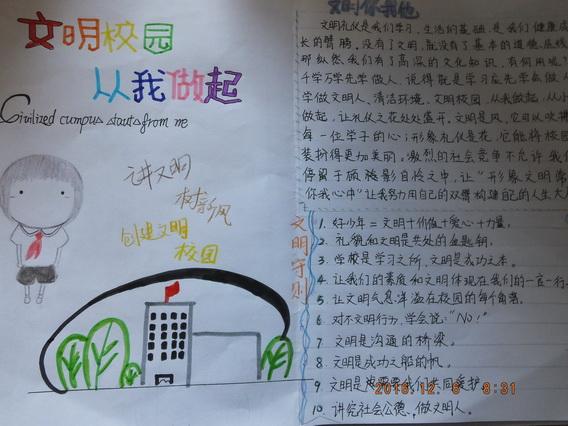 文明校园
从我做起
Civilized campus starts from me
讲文明
树新风
创建文明
校园
文明你我他
文明礼仪是我们学习、生活的基础,是我们健康成
长的臂膀。没有了文明,就没有了基本的道德底线
那纵然我们有了高深的文化知识,有何用呢?
千学万学先学做人,说得就是学习应先学会做人
学做文明人,清洁环境,文明校园,从我做起,从小
做起,让礼仪之花处处盛开。文明是风,它可以吹拂
每一位学子的心;形象礼仪是花,它能将校园
装扮得更加美丽。激烈的社会竞争不允许我们
停留于顾影自怜之中,让“形象文明常
你我心中”让我努力用自己的双臂构建自己的人生大
文明守则
1. 好少年=文明+价值+爱心+力量。
2. 礼貌和文明是共处的金钥匙。
3. 学校是学习之所,文明是成功之本。
4. 让我们的素质和文明体现在我们的一言一行
5. 让文明气息洋溢在校园的每个角落。
6. 对不文明行为,学会说:“NO!”
7. 文明是沟通的桥梁。
8. 文明是成功之船的帆。
9. 文明是需要我们共同爱护
10. 讲究社会公德,做文明人。
8:31